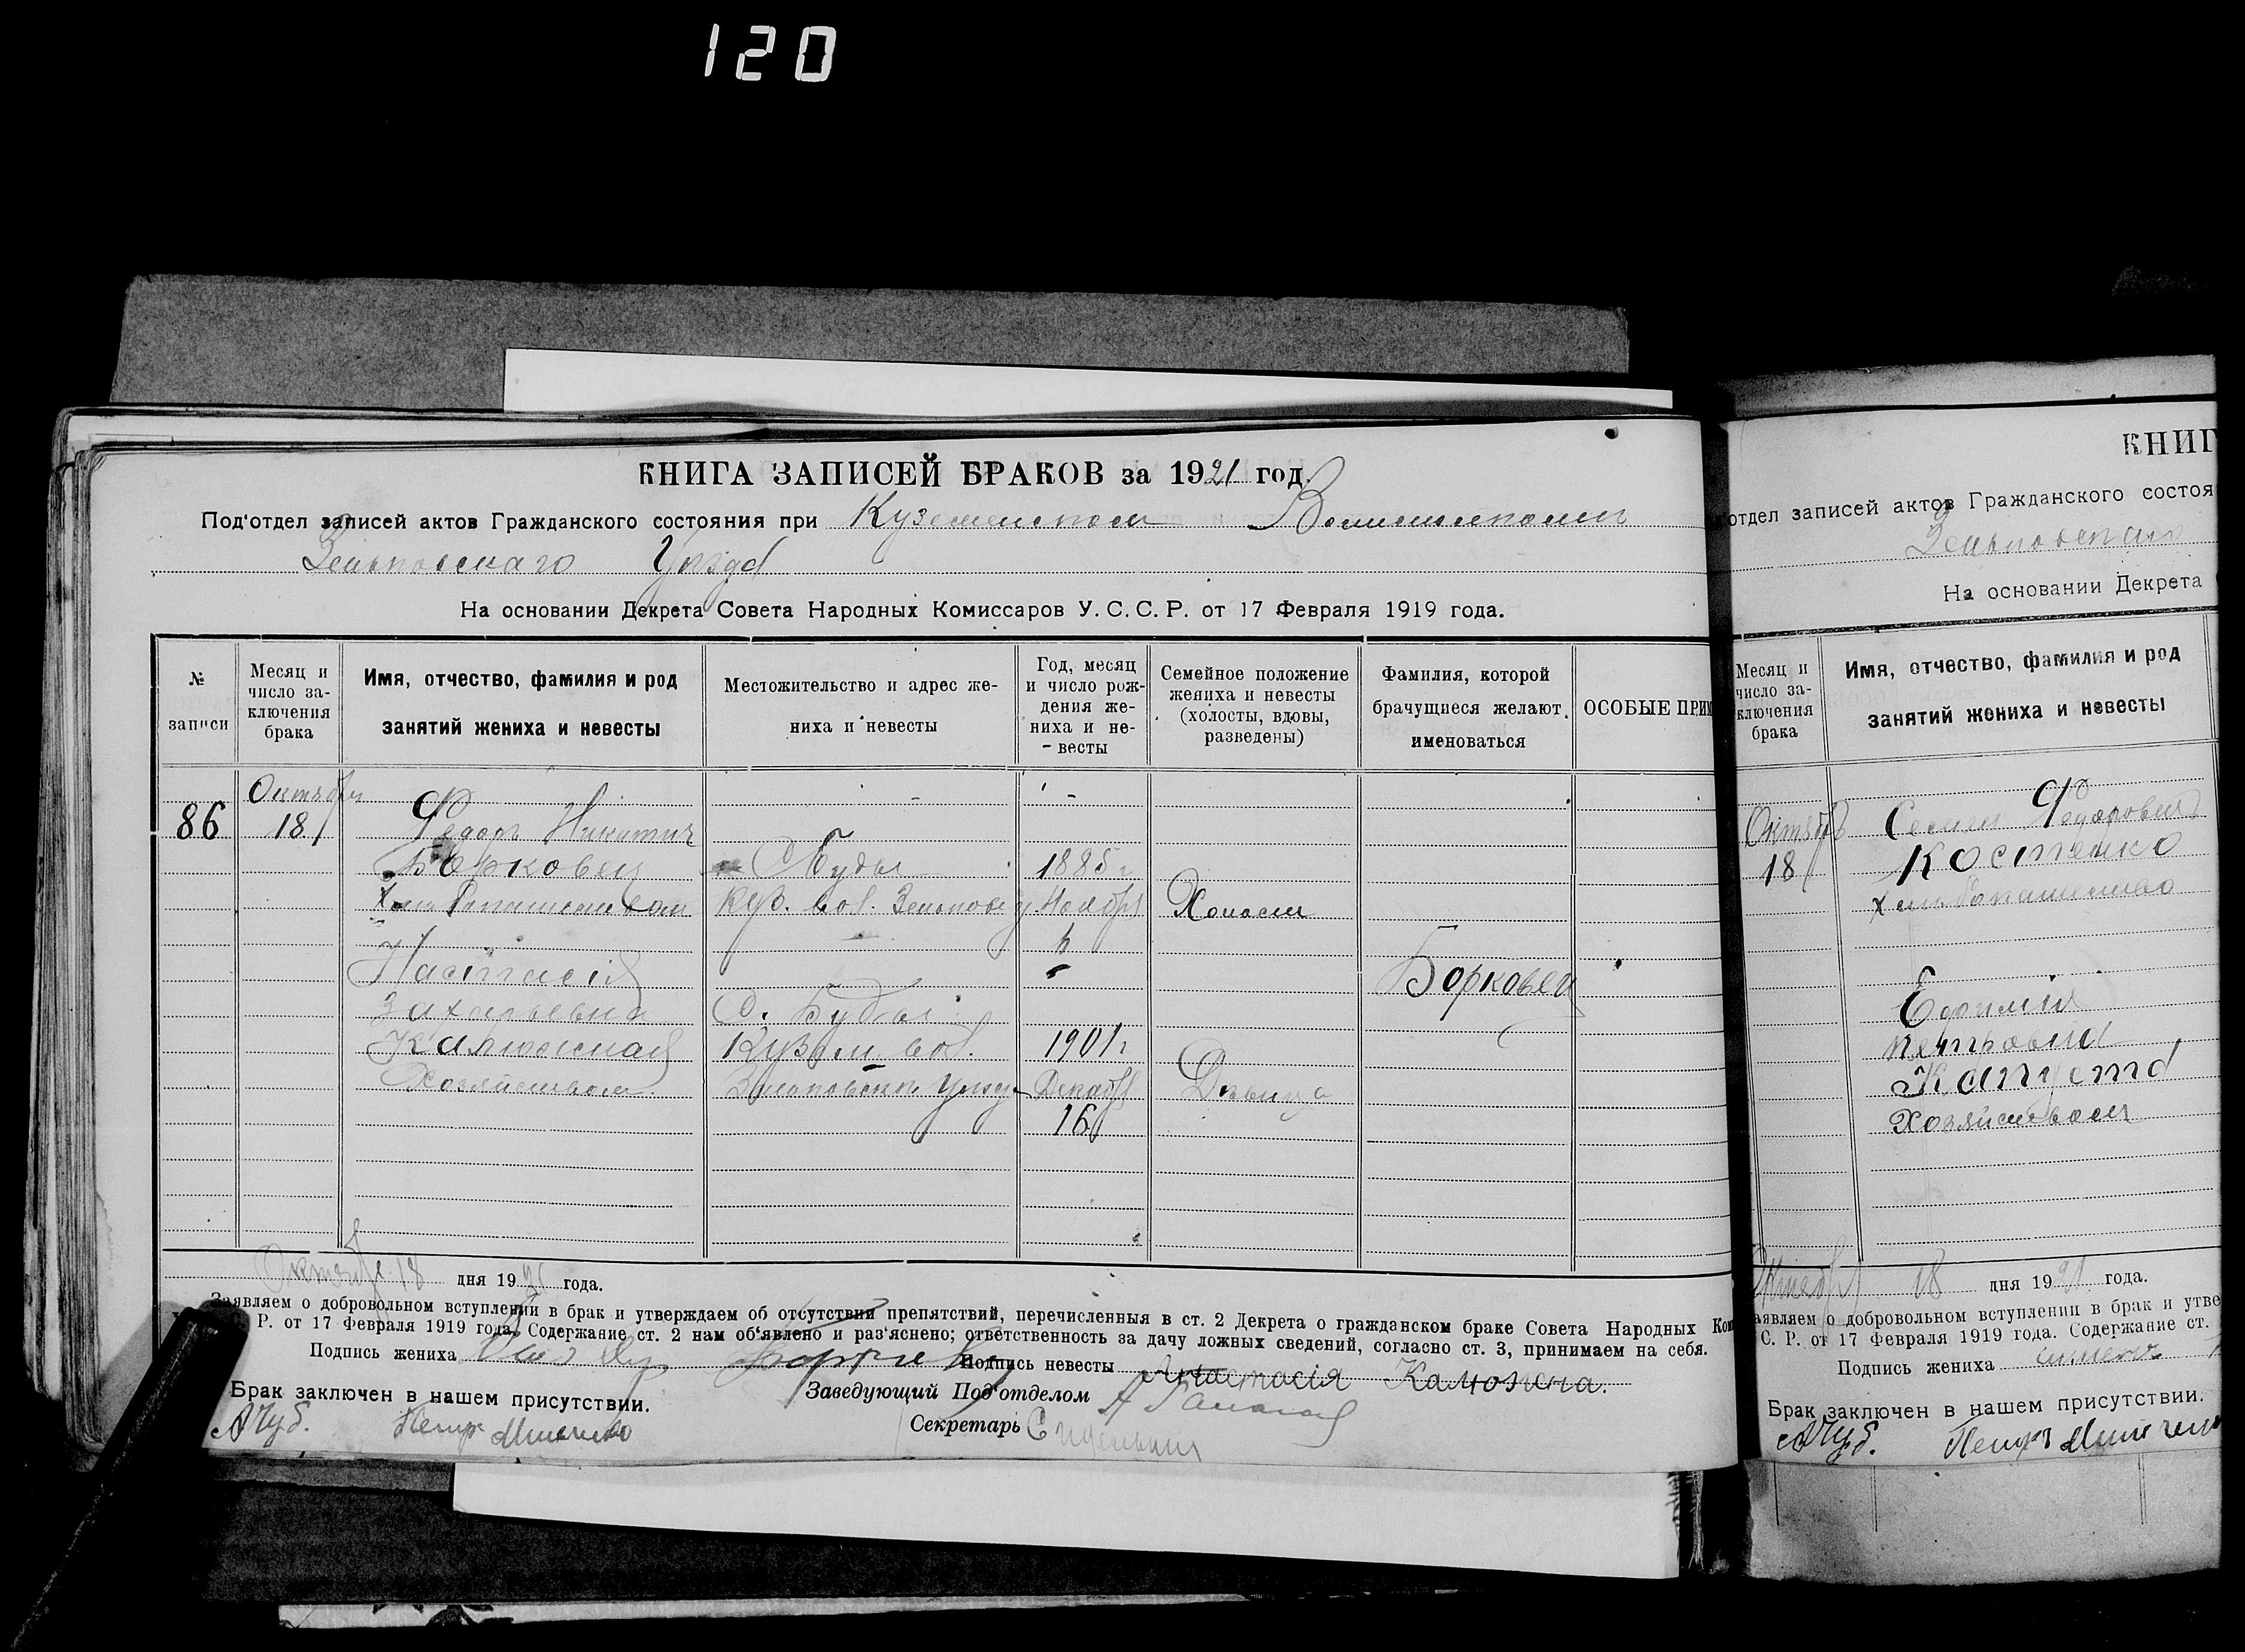 120
КНИГА ЗАПИСЕЙ БРАКОВ за 1921 год.
Под'отдел записей актов Гражданского состояния при Куземенском Волисполкоми
Зеньковскаго Уезда
На основании Декрета Совета Народных Комиссаров У. С. С. Р. от 17 Февраля 1919 года.
№ записи
Месяц и число заключения брака
Имя, отчество, фамилия и род занятий жениха и невесты
Местожительство и адрес жениха и невесты
Год, месяц и число рождения жениха и невесты
Семейное положение жениха и невесты (холосты, вдовы, разведены)
Фамилия, которой брачущиеся желают именоваться
ОСОБЫЕ ПРИМ
86
Октября
18
Федор Никитич
Борковец
с Буды
1885 г
Куз. вол. Зеньков у
Ноября
Холост
Настасія
Борковец
Захарьевна
с. Буды
Калюжная
Кузем. вол.
1901 г
Хозяйством
Зеньковска Уезда
Декабря
Девица
16
Октября 18 дня 1921 года.
Заявляем о добровольном вступлении в брак и утверждаем об отсутствии препятствий, перечисленных в ст. 2 Декрета о гражданском браке Совета Народных Ком
Р. от 17 Февраля 1919 года. Содержание ст. 2 нам об'явлено и раз'яснено; ответственность за дачу ложных сведений, согласно ст. 3, принимаем на себя.
Подпись жениха
Подпись невесты Анастасія Калюжена.
Брак заключен в нашем присутствии.
Заведующий Под'отделом
А Чуб. Петр
Секретарь
КНИГ
отдел записей актов Гражданского состоя
Зеньковскаго
На основании Декрета
Месяц и число заключения брака
Имя, отчество, фамилия и род занятий жениха и невесты
Октября
18
Семен Федорович
Костенко
хлебопашество
Ефимія
Петровна
Капуста
Хозяйством
Октября 18 дня 1921 года.
аявляем о добровольном вступлении в брак и утве
С. Р. от 17 Февраля 1919 года. Содержание ст.
Подпись жениха
Брак заключен в нашем присутствии.
А Чуб. Петр